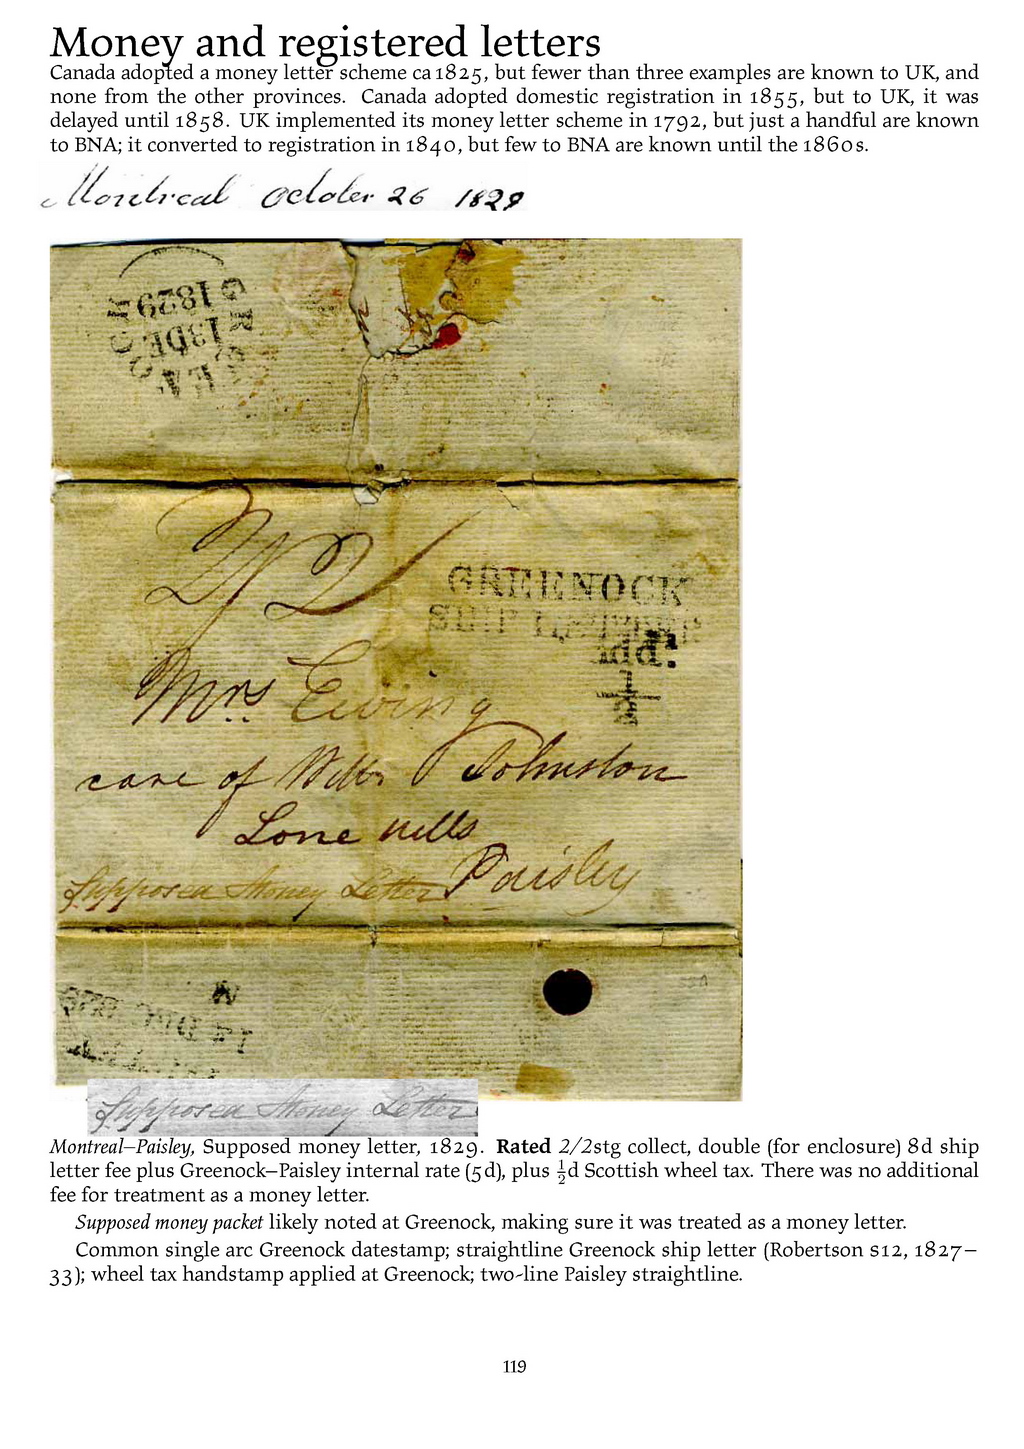 Money and registered letters
Canada adopted a money letter scheme ca 1825, but fewer than three examples are known to UK, and
none from the other provinces. Canada adopted domestic registration in 1855, but to UK, it was
delayed until 1858. UK implemented its money letter scheme in 1792, but just a handful are known
to BNA; it converted to registration in 1840, but few to BNA are known until the 1860s.
Montreal October 26 1829
GREENOCK
13DE
1829
GREENOCK
SHIP LETTER
Add.l
½
Mrs Ewing
care of Johnston
Lone
Paisley
Supposed Money Letter
14 DEC 829
Supposed Money Letter
Montreal–Paisley, Supposed money letter, 1829. Rated 2/2stg collect, double (for enclosure) 8d ship
letter fee plus Greenock–Paisley internal rate (5d), plus ½d Scottish wheel tax. There was no additional
fee for treatment as a money letter.
Supposed money packet likely noted at Greenock, making sure it was treated as a money letter.
Common single arc Greenock datestamp; straightline Greenock ship letter (Robertson S12, 1827–
33); wheel tax handstamp applied at Greenock; two-line Paisley straightline.
119